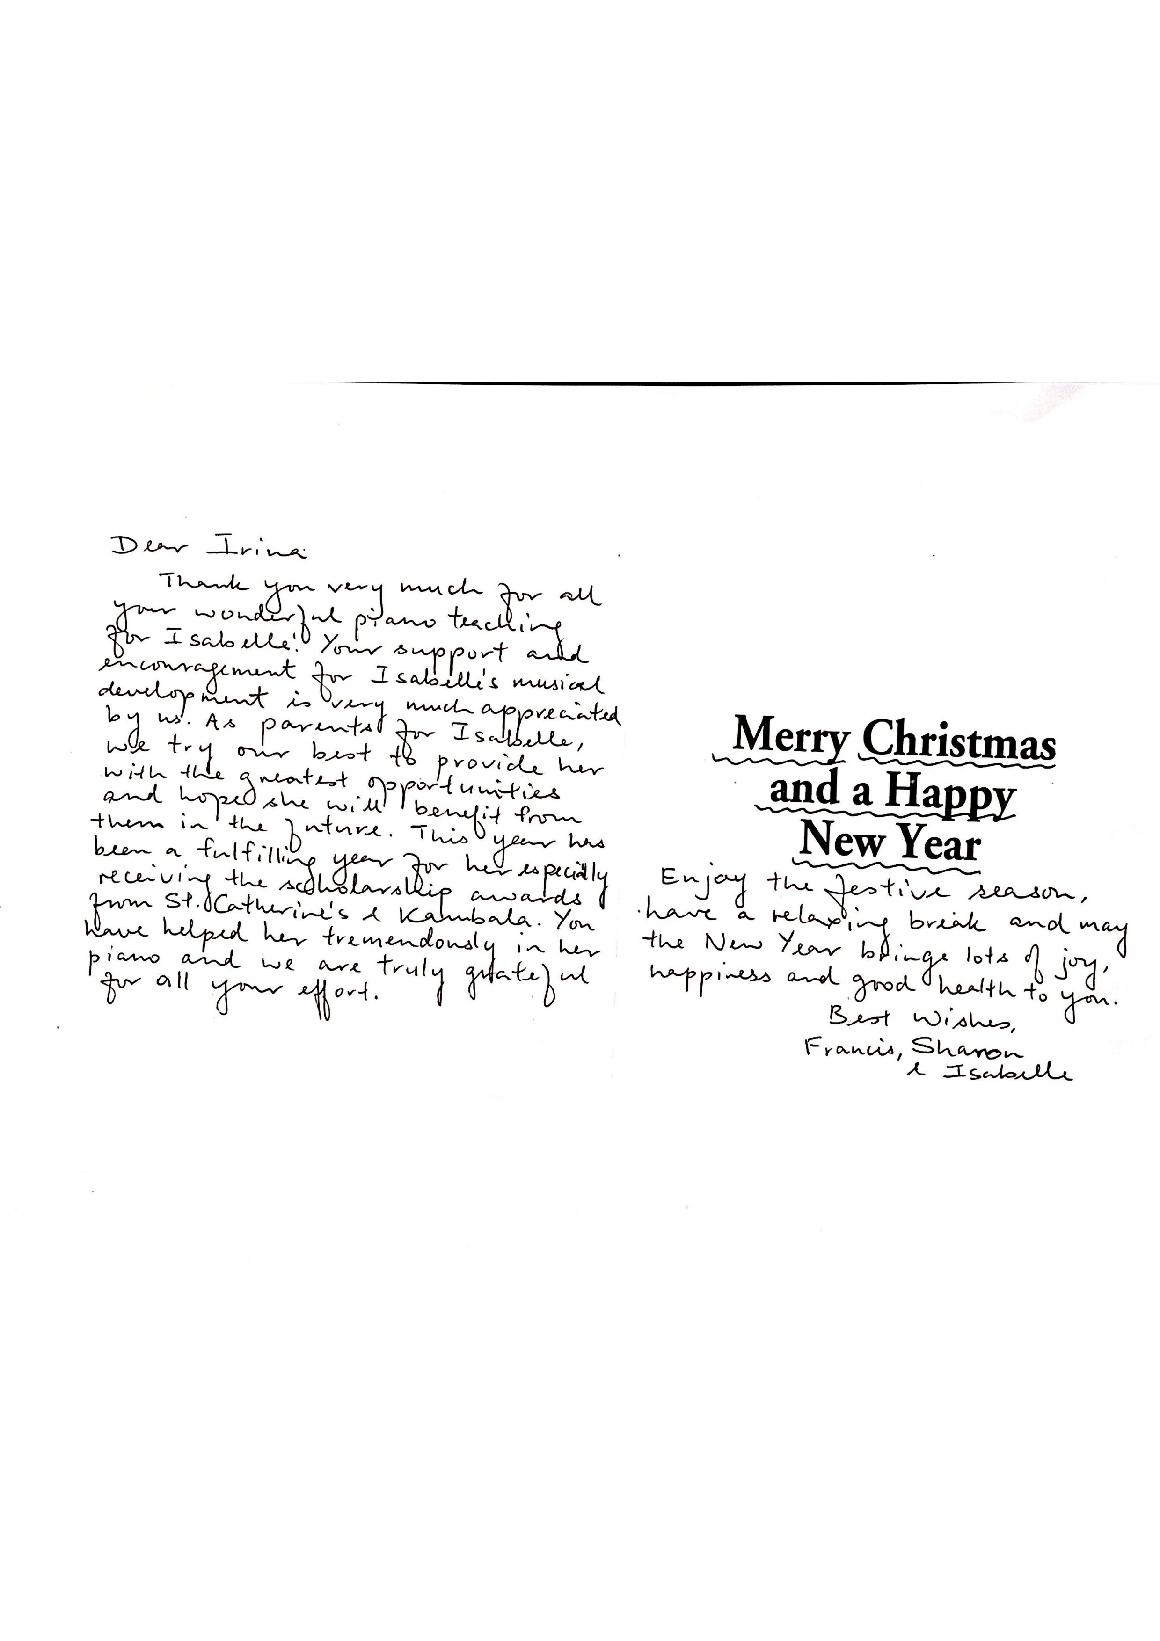 Dear Irina
Thank you very much for all
your wonderful piano teaching
for Isabelle! Your support and
encouragement for Isabelle's musical
development is very much appreciated
by us. As parents for Isabelle,
we try our best to provide her
with the greatest opportunities
and hope she will benefit from
them in the future. This year has
been a fulfilling year for her especially
receiving the scholarship awards
from St. Catherine's & Kambala. You
have helped her tremendously in her
piano and we are truly grateful
for all your effort.
Merry Christmas
and a Happy
New Year
Enjoy the festive season,
have a relaxing break and may
the New Year brings lots of joy,
happiness and good health to you.
Best Wishes,
Francis, Sharon
& Isabelle